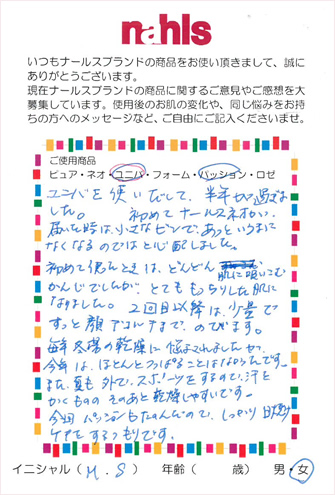 nahls
いつもナールスブランドの商品をお使い頂きまして、誠に
ありがとうございます。
現在ナールスブランドの商品に関するご意見やご感想を大
募集しています。使用後のお肌の変化や、同じ悩みをお持
ちの方へのメッセージなど、ご自由にご記入くださいませ。
ご使用商品
ピュア・ネオ・ユニバ・フォーム・パッション・ロゼ
ユニバを使いだして、半年が過ぎま
した。 初めてナールスネオが、
届いた時は、小さなビンで、あっというまに
なくなるのではと心配しました。
初めて使ったときは、どんどん 肌に吸いこむ
かんじでしたが、とてももっちりした肌に
なりました。 2回目以降は、少量で
ずっと顔 デコルテまで、のびます。
毎年冬場の乾燥に悩まされましたが、
今年は、ほとんどつっぱることはなかったです。
また、夏も外で、スポーツをするので、汗を
かくものの そのあと乾燥しやすいです。
今回 パッションもたのんだので、しっかり
ケアをするつもりです。
イニシャル（ M.S ） 年齢（ 歳） 男・女